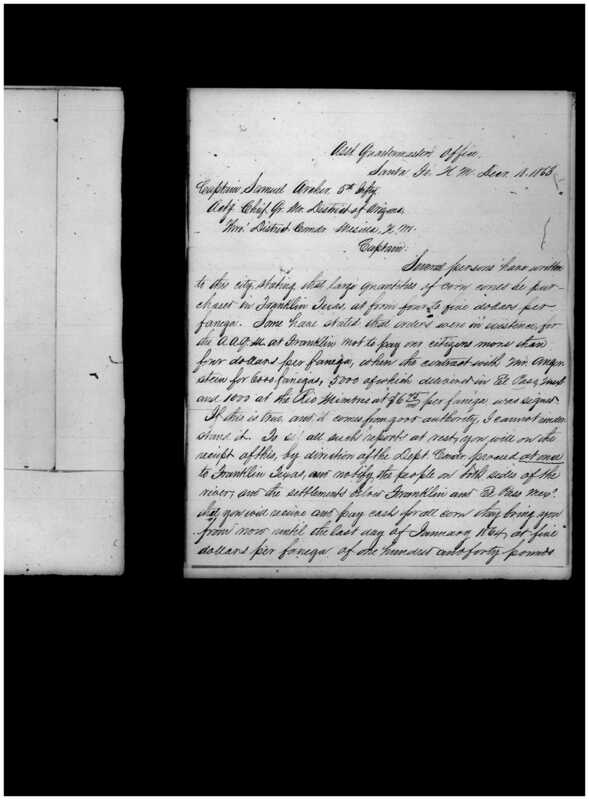 Asst Quartermasters Office,
Santa Fe. N. M. Decr. 1. 1863
Captain Samuel Archer 5th Infty
Actg. Chief Qr. Mr. District of Arizona,
Hdqr. District Comdr Mesilla, N. M.
Captain:
Several persons have written
to this city, stating that large quantities of corn could be pur-
chased in Franklin Texas, at from four to five dollars per
fanega. Some have stated that orders were in existence, for
the A. A. Q. M. at Franklin not to pay our citizens more than
four dollars per fanega, when the contract with Mr.
stein for 6000 fanegas, 5000 of which delivered in El Paso, Texas
and 1000 at the Rio Mimbres at $6 per fanega was signed.
If this is true, and it comes from good authority, I cannot under-
stand it. To set all such reports at rest, you will on the
receipt of this, by direction of the Dept. Comdr. proceed at once
to Franklin Texas, and notify the people on both sides of the
river, and the settlements below Franklin and El Paso Mexo.
that you will receive and pay cash for all corn they bring you
from now until the last day of January, 1864, at five
dollars per fanega of one hundred and forty pounds